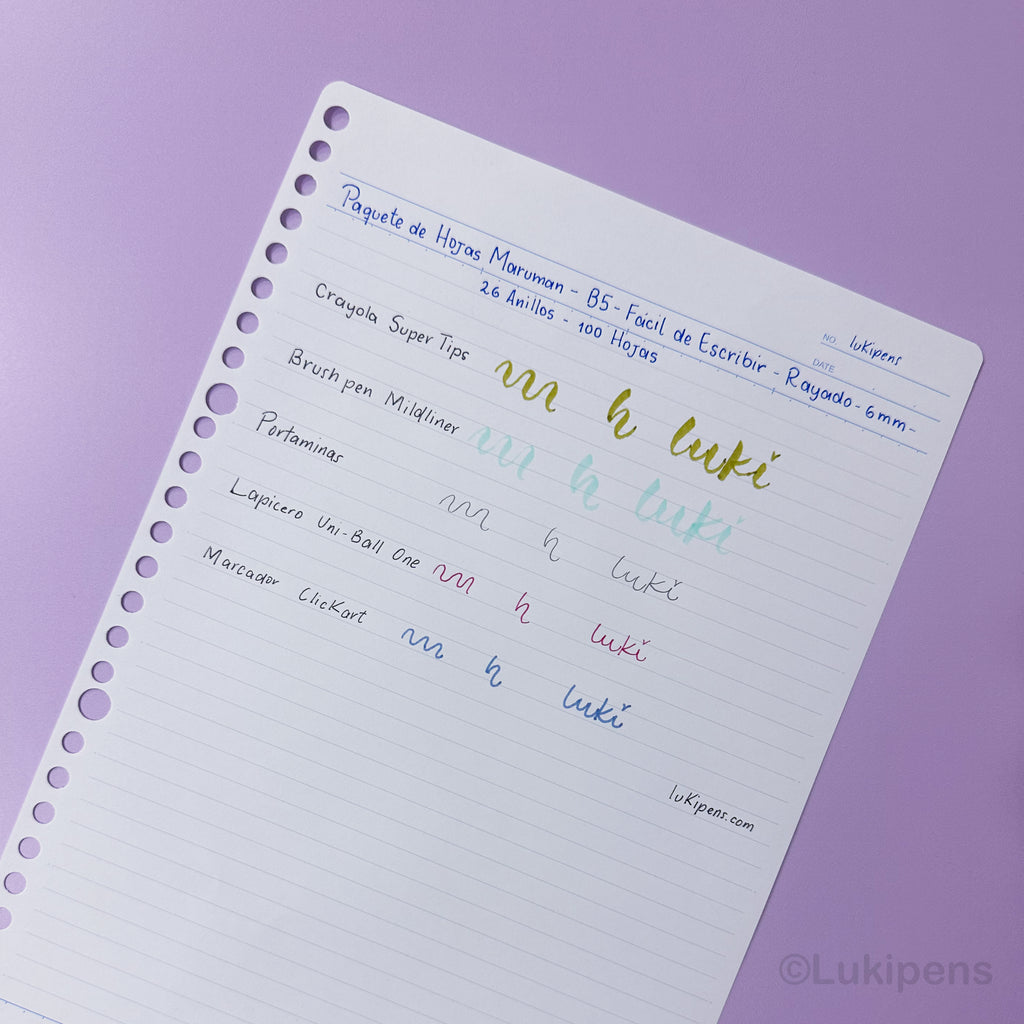 Paquete de Hojas Maruman - B5 - Fácil de Escribir - Rayado - 6mm -
26 Anillos - 100 Hojas
NO. luKipens
DATE
Crayola Super Tips m h luki
Brush pen Mildliner m h luki
Portaminas m h luki
Lapicero Uni-Ball One m h luki
Marcador ClicKart m h luki
luKipens.com
©Lukipens